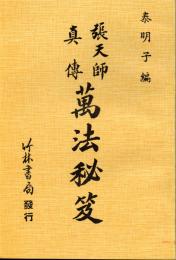 泰明子編
張天師
真傳
萬法秘笈
竹林書局 發行